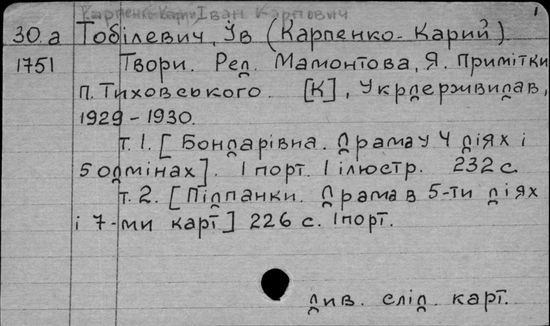 Карпенко-Карий, Іван Карпович
1
30.а Тобілевич, Ів (Карпенко-Карий).
1751 Твори. Ред. Мамонтова, Я. Примітки
П. Тиховського. [К], Укрдержвидав,
1929-1930.
т. 1. [Бондарівна. Драма у 4 діях і
5 одмінах]. 1 порт. 1 ілюстр. 232 с.
т. 2. [Підпанки. Драма в 5-ти діях
і 7-ми карт] 226 с. 1 порт.
див. слід. карт.